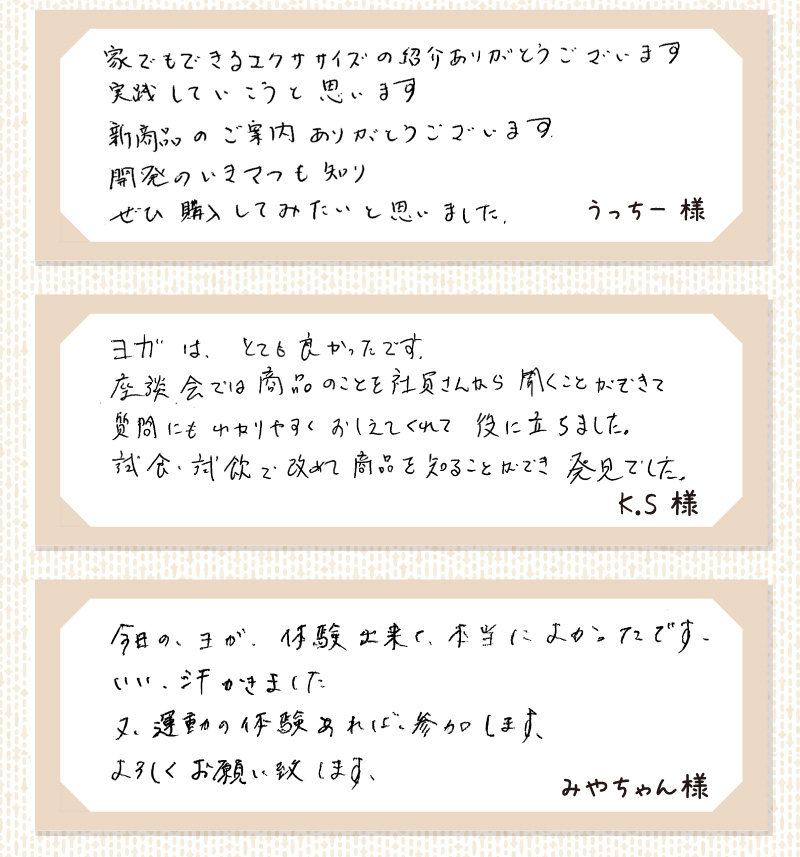 家でもできるエクササイズの紹介ありがとうございます
実践していこうと思います
新商品のご案内ありがとうございます
開発のいきさつも知り
ぜひ購入してみたいと思いました。
うっちー様
ヨガは、とても良かったです。
座談会では商品のことを社員さんから聞くことができて
質問にもわかりやすくおしえてくれて役に立ちました。
試食・試飲で改めて商品を知ることができ発見でした。
K.S様
今日の、ヨガ、体験出来て、本当によかったです。
いい、汗かきました
又、運動の体験あれば、参加します、
よろしくお願い致します、
みやちゃん様